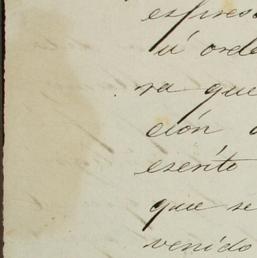 espreso
á orde
ra que
ción
escrito
que se
venido